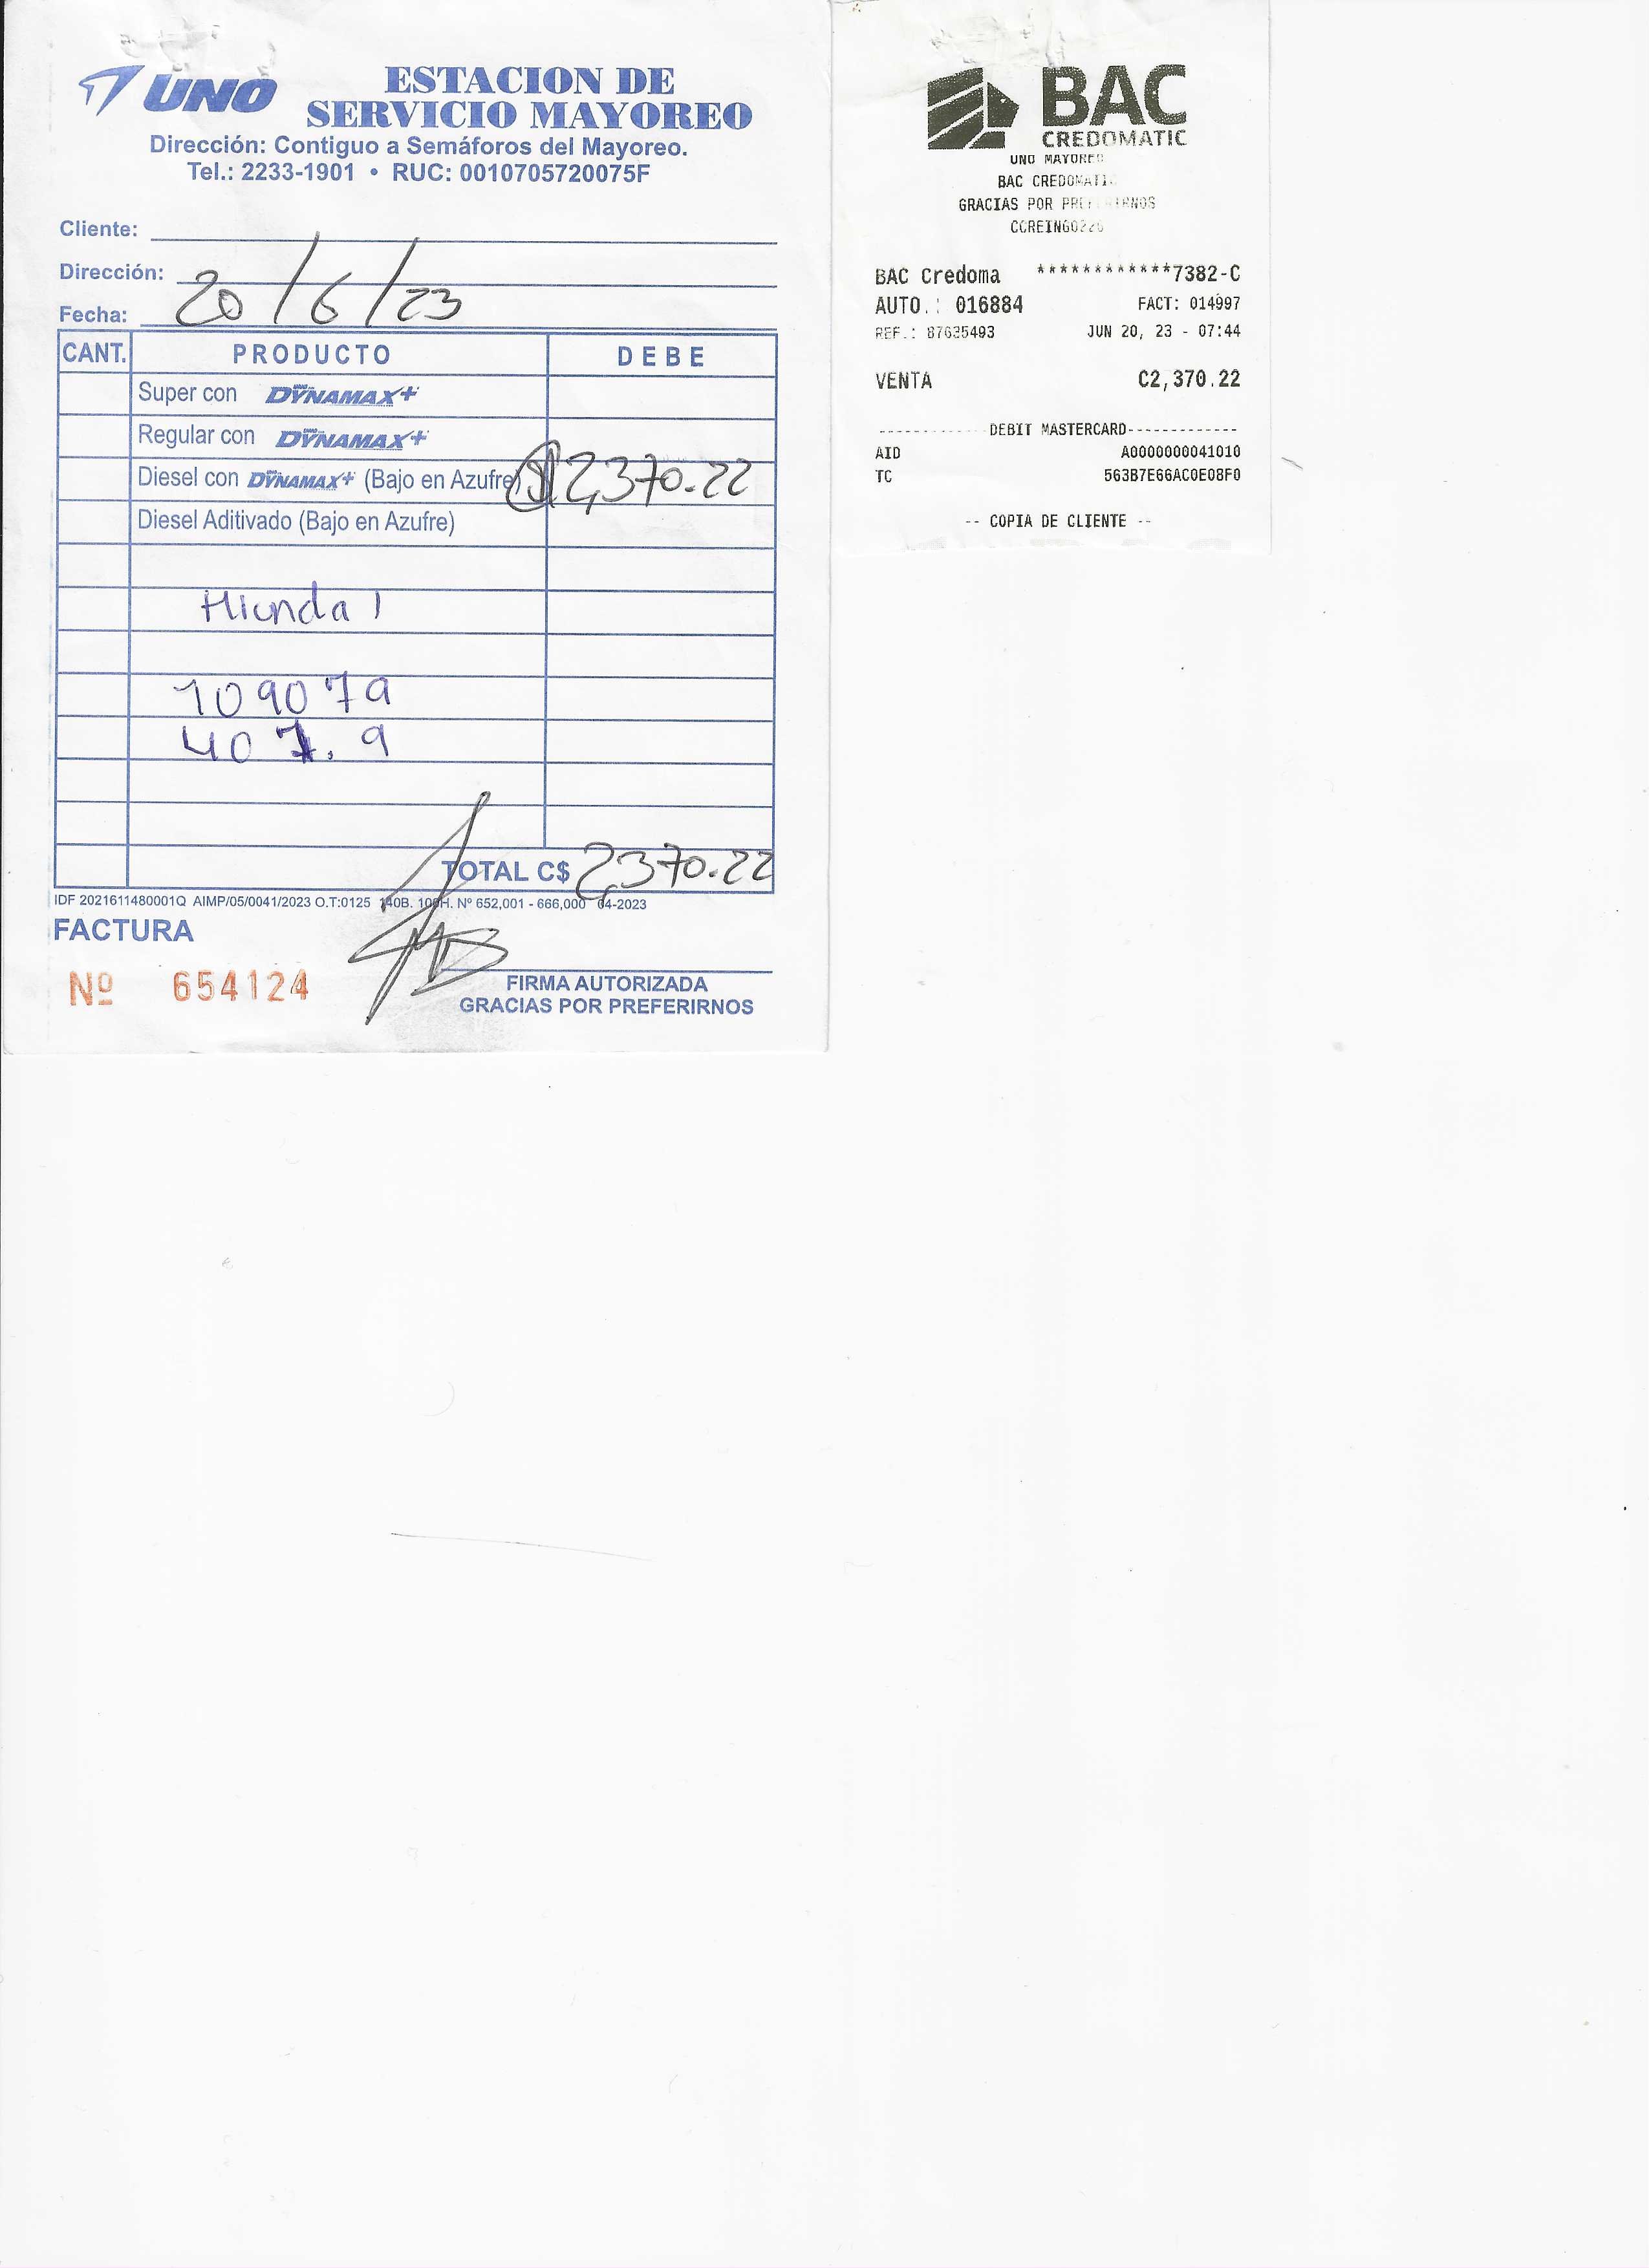 UNO
ESTACION DE
SERVICIO MAYOREO
Dirección: Contiguo a Semáforos del Mayoreo.
Tel.: 2233-1901 • RUC: 0010705720075F
Cliente:
Dirección:
Fecha: 20/6/23
CANT. PRODUCTO DEBE
Super con DYNAMAX+
Regular con DYNAMAX+
Diesel con DYNAMAX+ (Bajo en Azufre) 2,370.22
Diesel Aditivado (Bajo en Azufre)
Hiunda I
109079
407.9
TOTAL C$ 2,370.22
IDF 2021611480001Q AIMP/05/0041/2023 O.T:0125 140B. 100H. Nº 652,001 - 666,000 04-2023
FACTURA
Nº 654124
FIRMA AUTORIZADA
GRACIAS POR PREFERIRNOS
BAC
CREDOMATIC
UNO MAYOREO
BAC CREDOMATIC
GRACIAS POR PREFERIRNOS
BAC Credoma ************7382-C
AUTO.: 016884 FACT: 014997
REF.: 87635493 JUN 20, 23 - 07:44
VENTA C2,370.22
------------DEBIT MASTERCARD-------------
AID A0000000041010
TC 563B7E66AC0E08F0
-- COPIA DE CLIENTE --